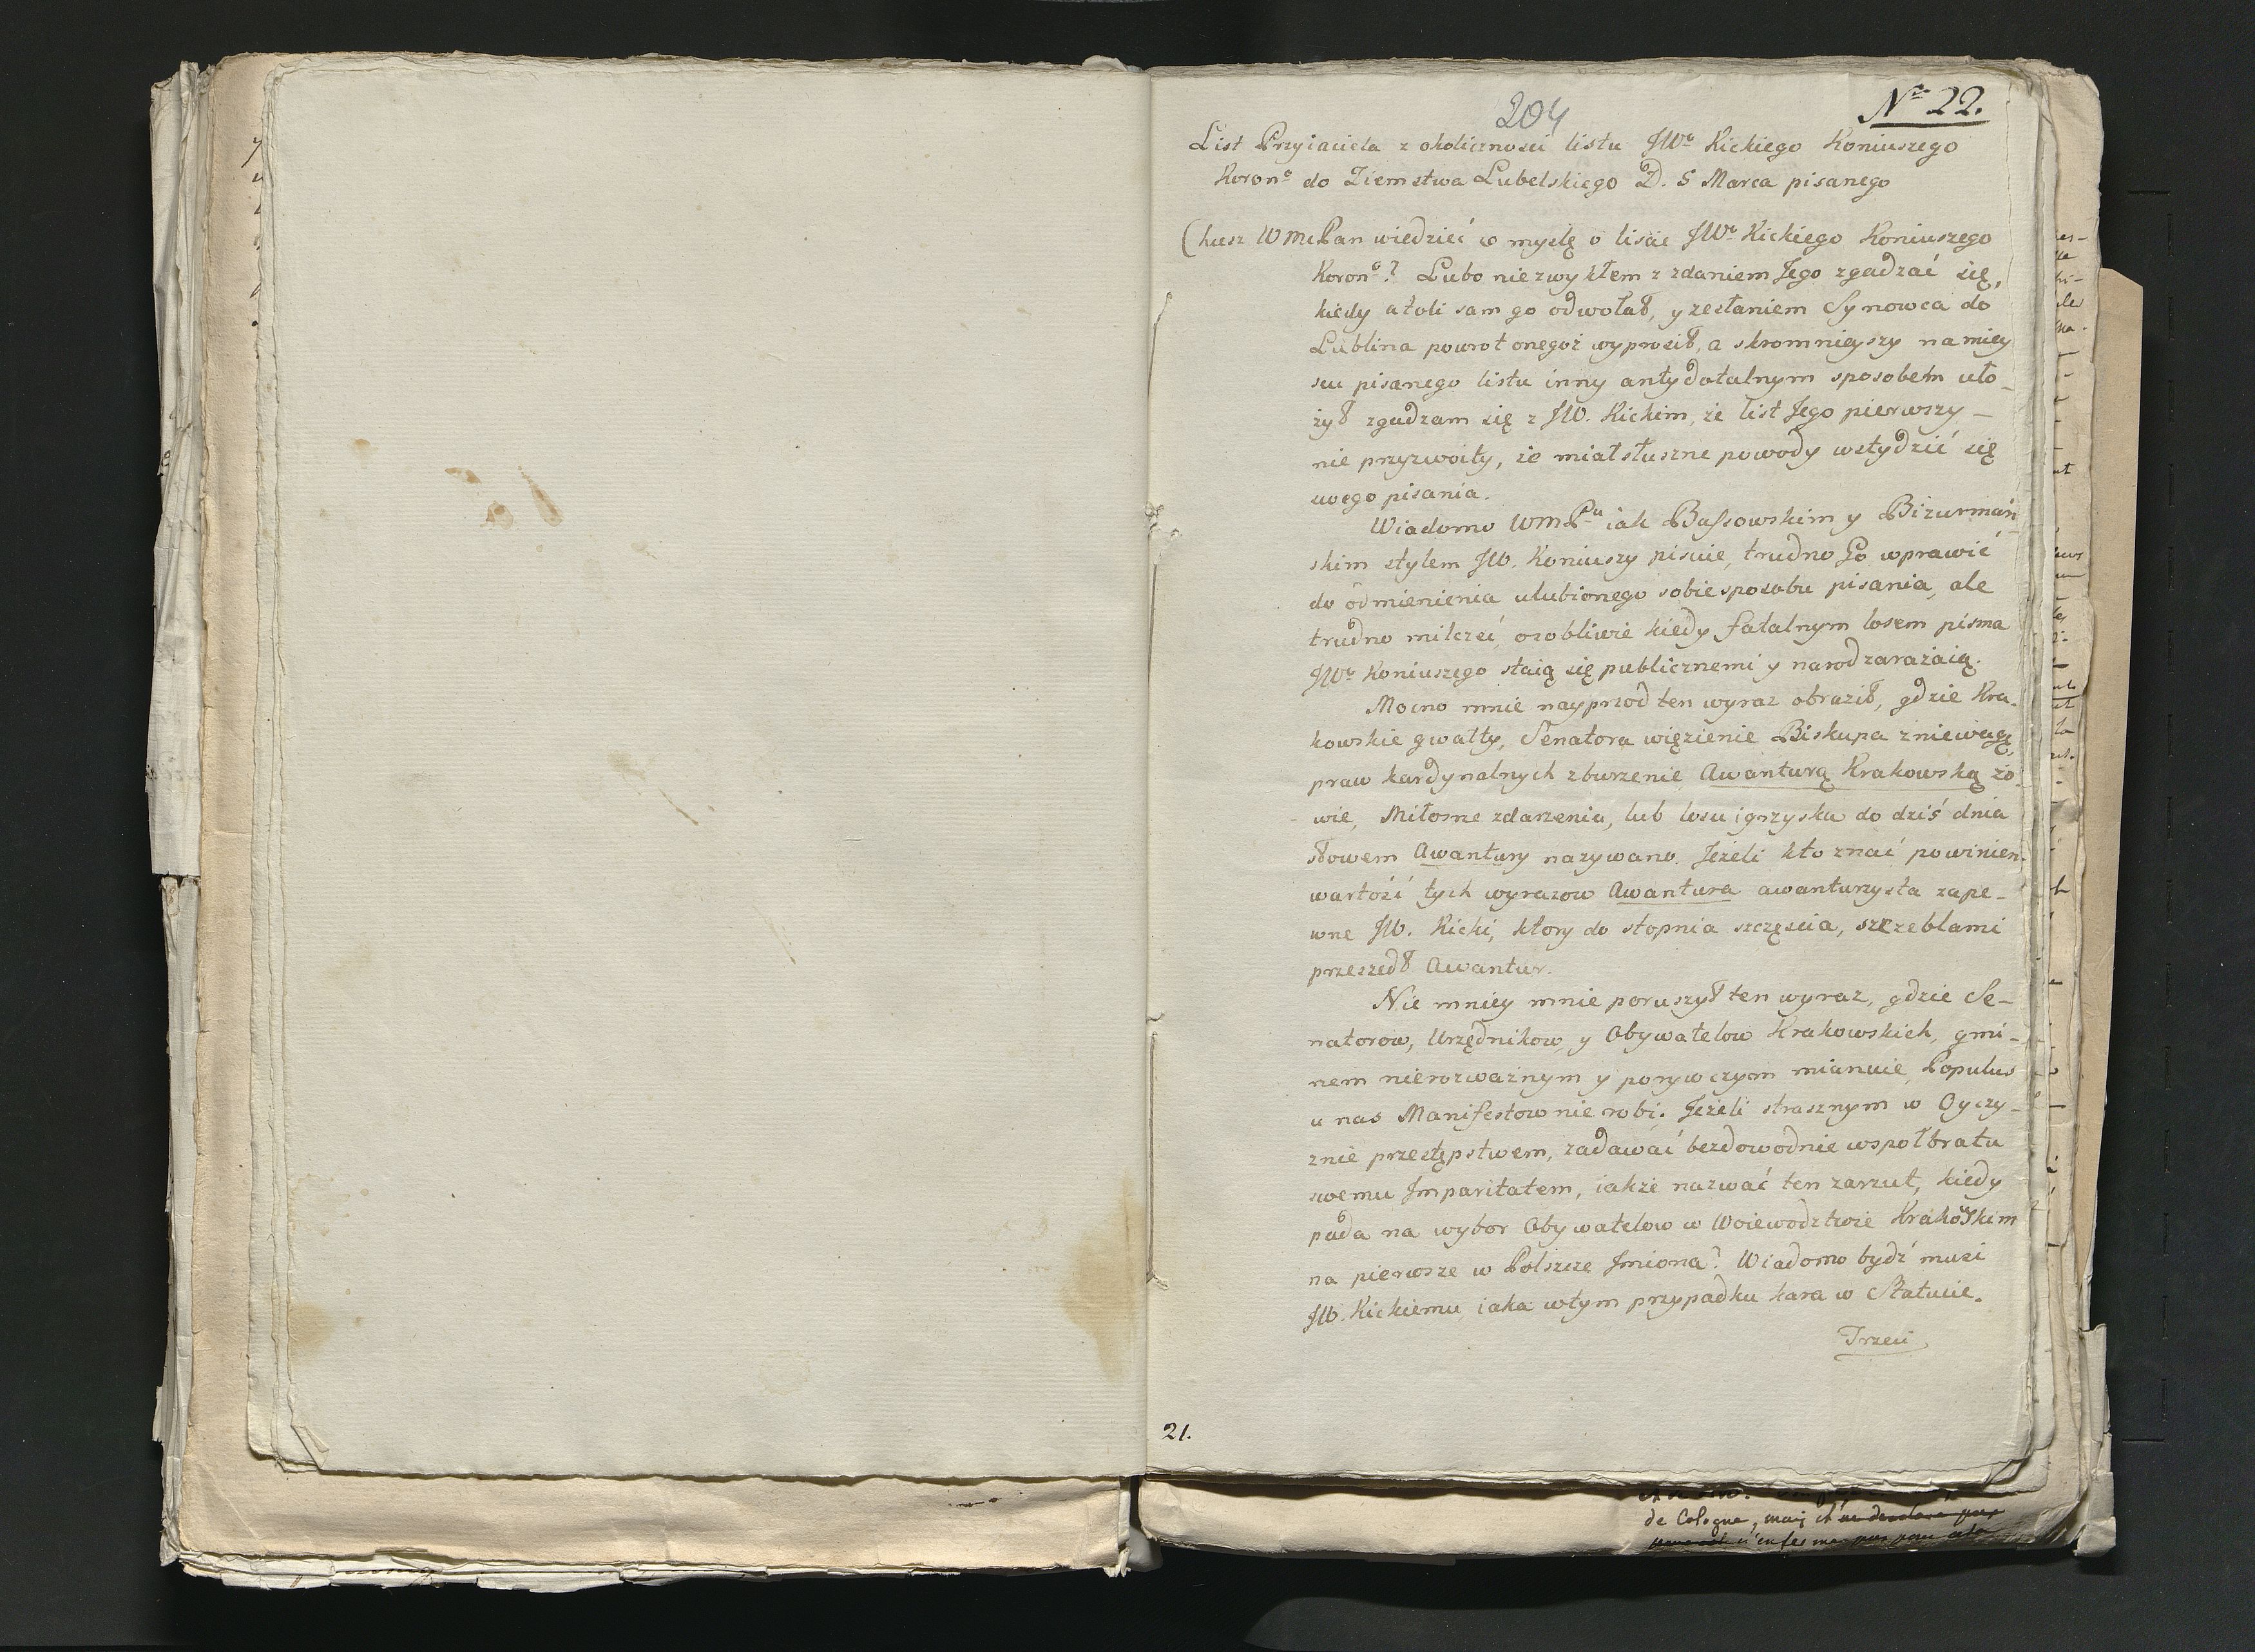 204
No 22.
List Przyiaciela z okoliczności listu JWo Kickiego Koniuszego
Korono do Ziemstwa Lubelskiego D. 5 Marca pisanego
Chcesz WMcPan wiedzieć co myślę o liście JWo Kickiego Koniuszego
Korono? Lubo niezwykłem z zdaniem Jego zgadzać się,
kiedy atoli sam go odwołał, y zesłaniem Synowca do
Lublina powrot onegoż wyprosił, a skromnieyszy na miey
scu pisanego listu inny antydatalnym sposobem uło_
żył zgadzam się z JW. Kickim, że list Jego pierwszy _
nie przyzwoity, że miał słuszne powody wstydzić się
swego pisania.
Wiadomo WMPu iak Bassowskim y Bizurmań
skim stylem JW. Koniuszy pisuie, trudno Go wprawić
do odmienienia ulubionego sobie sposobu pisania, ale
trudno milczeć, osobliwie kiedy fatalnym losem pisma
JWo Koniuszego staią się publicznemi y narod zarażaią.
Mocno mnie nayprzod ten wyraz obraził, gdzie Kra_
kowskie gwałty, Senatora więzienie Biskupa zniewagę,
praw kardynalnych zburzenie, Awanturą Krakowską zo
wie, Miłosne zdarzenia, lub losu igrzyska do dziś dnia
słowem Awantury nazywano. Jeżeli kto znać powinien
wartość tych wyrazow Awantura awanturzysta zape_
wne JW. Kicki, ktory do stopnia szczęscia, szczeblami
przeszedł Awantur.
Nie mniey mnie poruszył ten wyraz, gdzie Se_
natorow, Urzędnikow, y Obywatelow Krakowskich, gmi_
nem nierozważnym y porywczym mianuie, Populus
u nas Manifestow nie robi. Jeżeli strasznym w Oyczy_
znie przestępstwem, zadawać bezdowodnie wspołbratu
swemu Imparitatem, iakże nazwać ten zarzut, kiedy
pada na wybor Obywatelow w Woiewodztwie Krakowskim
na pierwsze w Polszcze Imiona? Wiadomo bydź musi
JW. Kickiemu, iaka w tym przypadku kara w Statucie.
Trzeci
21.
de Cologne, mais